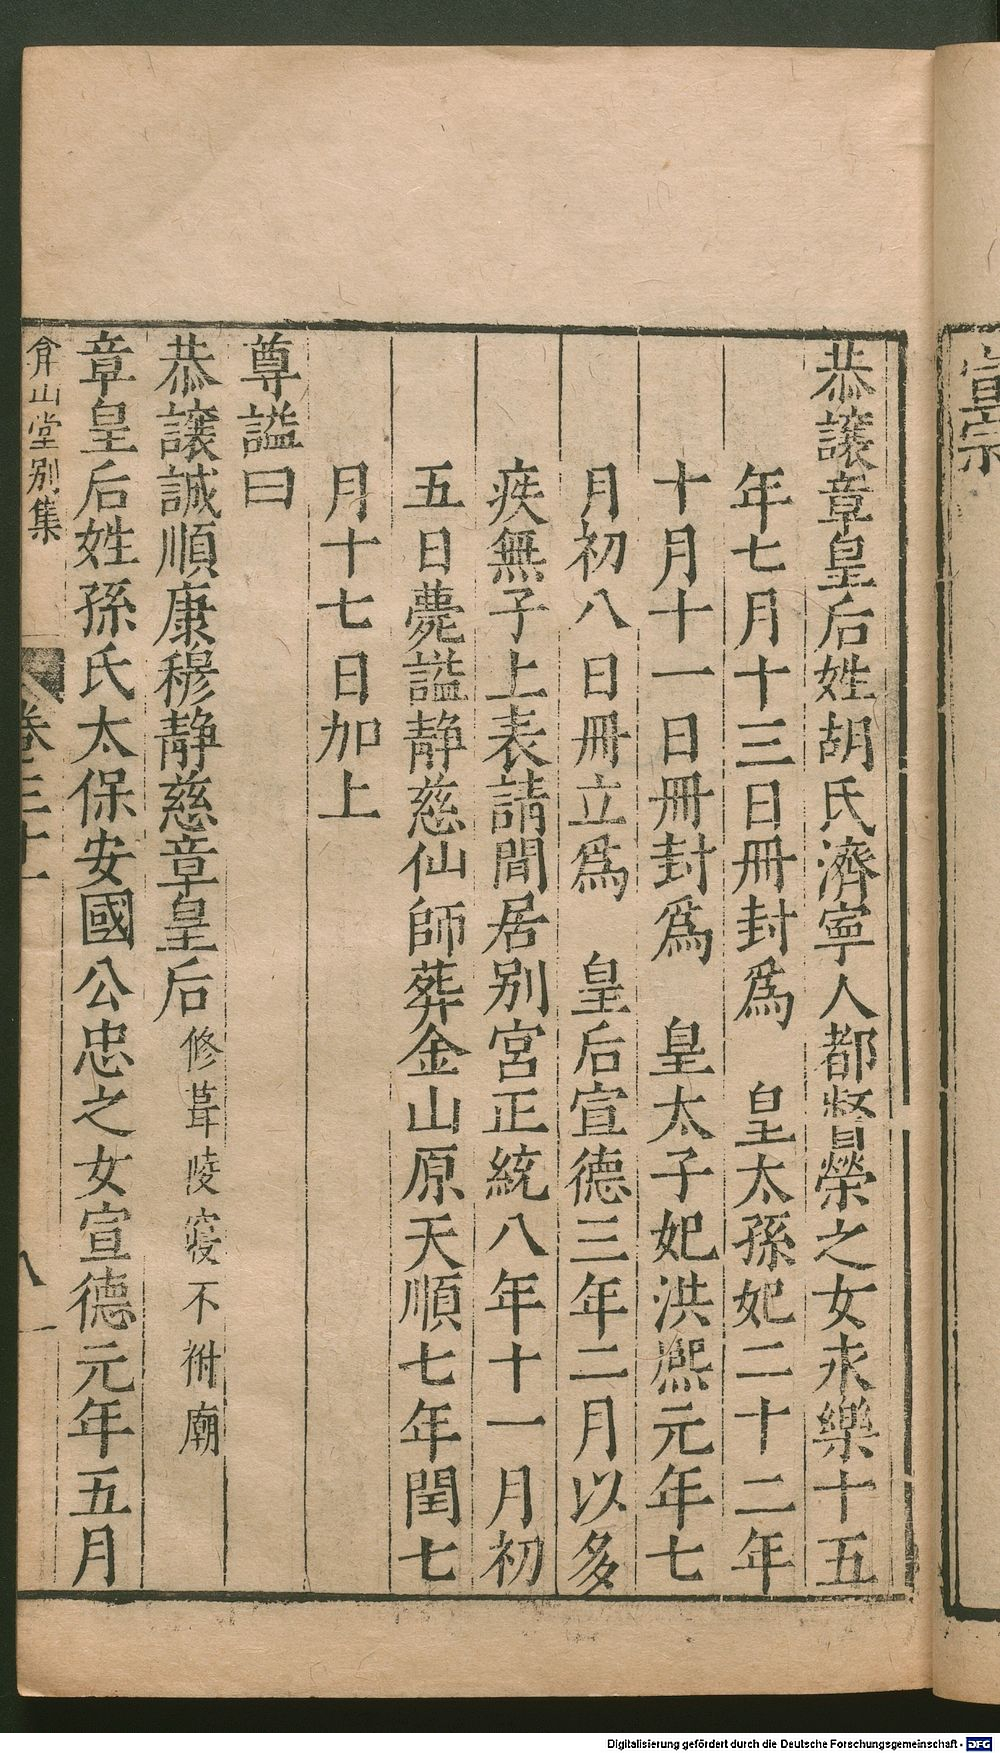 宣宗
恭讓章皇后姓胡氏濟寧人都督榮之女永樂十五
年七月十三日冊封爲 皇太孫妃二十二年
十月十一日冊封爲 皇太子妃洪熙元年七
月初八日冊立爲 皇后宣德三年二月以多
疾無子上表請間居别宮正統八年十一月初
五日薨謚靜慈仙師葬金山原天順七年閏七
月十七日加上
尊謚曰
恭讓誠順康穆靜慈章皇后修葺陵寢不祔廟
章皇后姓孫氏太保安國公忠之女宣德元年五月
弇山堂别集 卷三十一 八
Digitalisierung gefördert durch die Deutsche Forschungsgemeinschaft - DFG